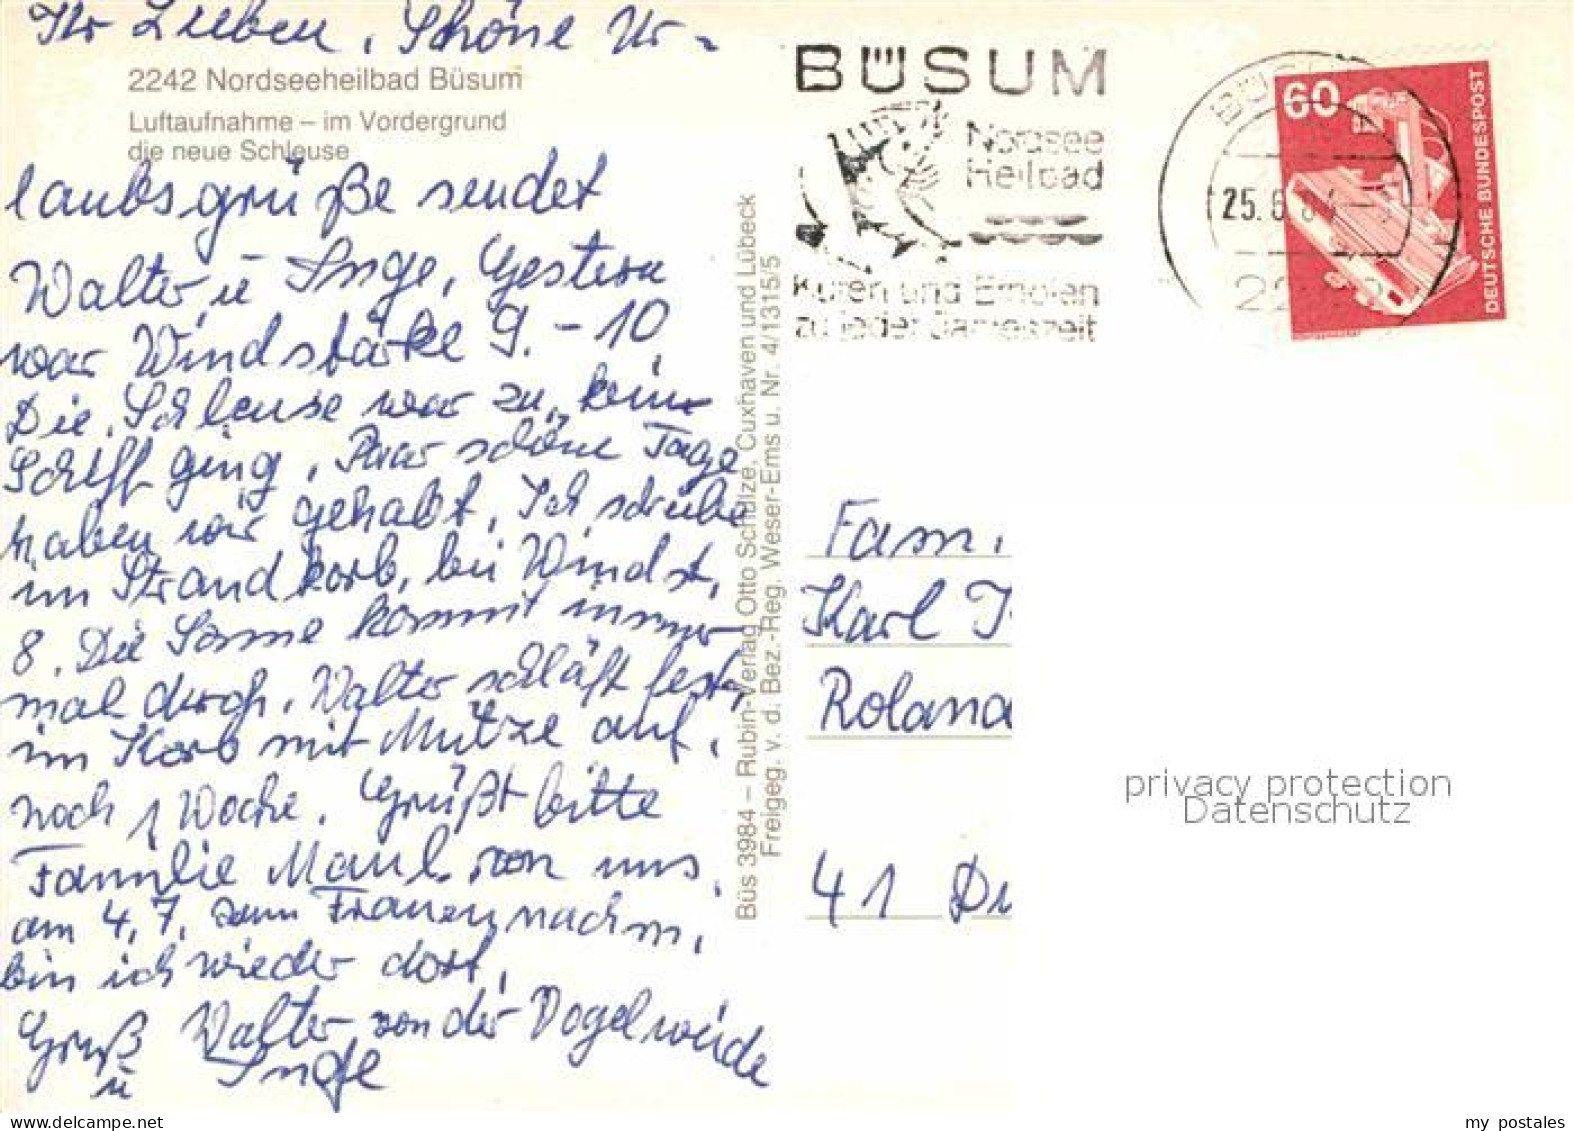 Ihr Lieben, Schöne Ur-
2242 Nordseeheilbad Büsum
Luftaufnahme – im Vordergrund
die neue Schleuse
laubsgrüße sendet
Walter u Inge, Gestern
war Windstärke 9.-10.
Die Schleuse war zu, kein
Schiff ging, Paar schöne Tage
haben wir gehabt, Ich schreibe
im Strandkorb, bei Windst,
8. Die Sonne kommt immer
mal durch, Walter schläft fest,
im Korb mit Mütze auf,
noch 1 Woche. Grüßt bitte
Familie Maul von uns,
am 4.7. zum Frauennachm,
bin ich wieder dort,
Gruß Walter von der Vogelweide
u Inge
Büs 3984 – Rubin-Verlag Otto Schulze, Cuxhaven und Lübeck
Freigeg. v. d. Bez.-Reg. Weser-Ems u. Nr. 4/1315/5
BÜSUM
Nordsee
Heilbad
Kuren und Erholen
zu jeder Jahreszeit
25.6.8
60
DEUTSCHE BUNDESPOST
Fam.
Karl
Roland
41 Du
privacy protection
Datenschutz
my postales